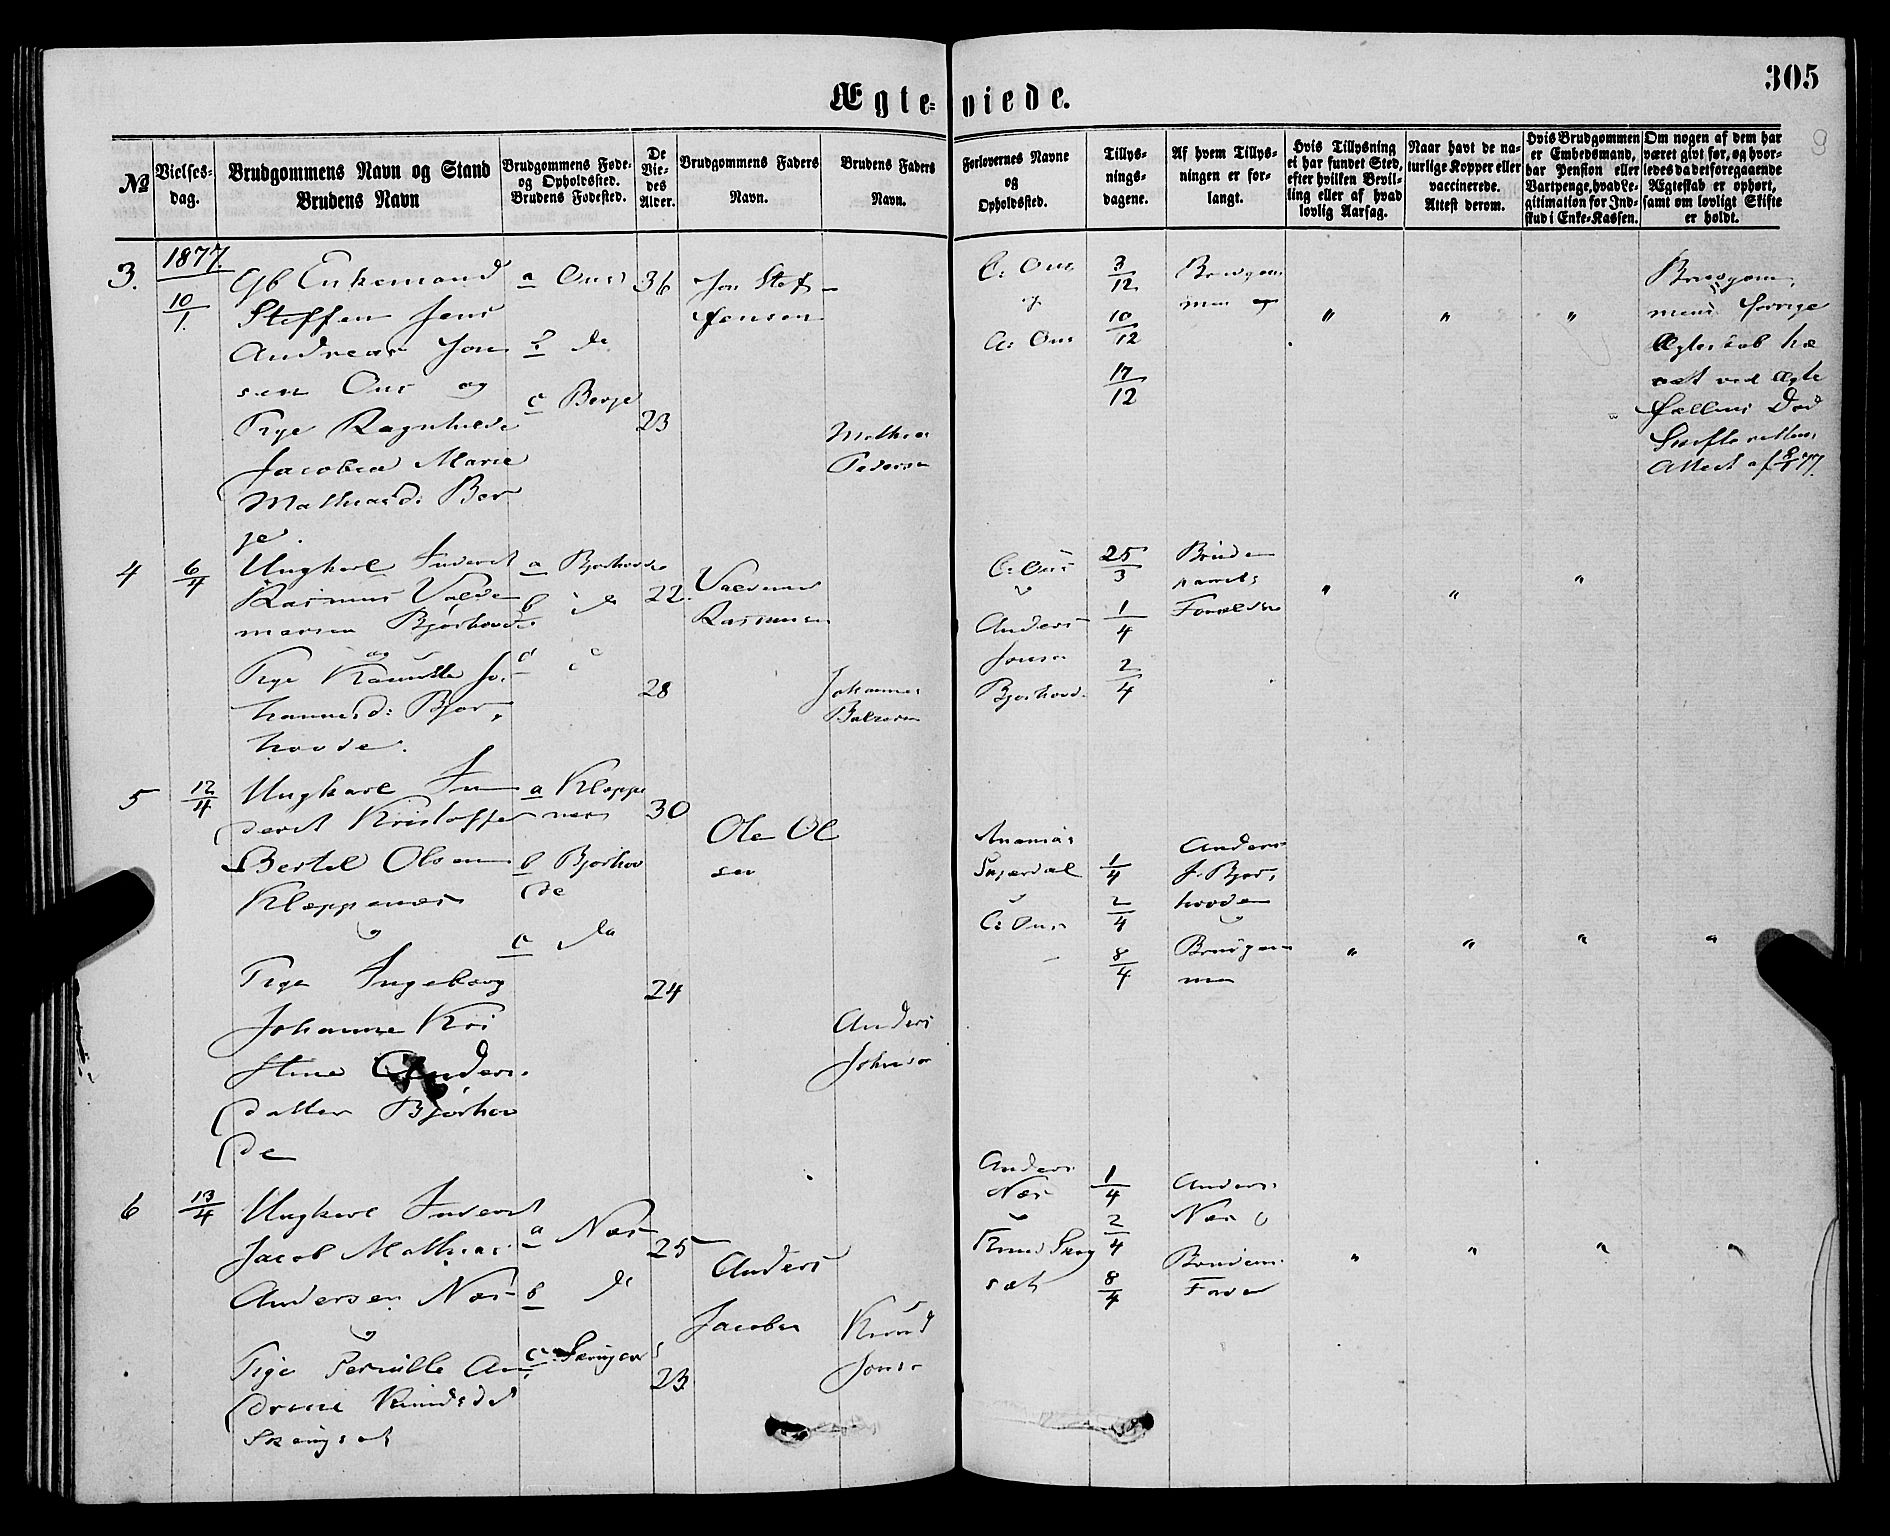 305
9
Ægte-viede.
No
Vielses-
dag.
Brudgommens Navn og Stand
Brudens Navn
Brudgommens Føde-
og Opholdssted.
Brudens Fødested.
De
Vie-
des
Alder.
Brudgommens Faders
Navn.
Brudens Faders
Navn.
Forlovernes Navne
og
Opholdssted.
Tillys-
nings-
dagene.
Af hvem Tillys-
ningen er for-
langt.
Hvis Tillysning
ei har fundet Sted,
efter hvilken Bevil-
ling eller af hvad
lovlig Aarsag.
Naar havt de na-
turlige Kopper eller
vaccinerede.
Attest derom.
Hvis Brudgommen
er Embedsmand,
har Pension eller
Vartpenge, hvad Le-
gitimation for Ind-
skud i Enke-Kassen.
Om nogen af dem har
været givt før, og hvor-
ledes da det foregaaende
Ægteskab er ophørt,
samt om lovligt Skifte
er holdt.
1877.
3.
10/1.
Gb Enkemand
Steffen Jens
Andreas Jon
sen Ous og
Pige Ragnhilde
Jacobea Marie
Mathiasd: Ber
ge.
a Ous
b do
c Berge
36
23
Jon Stef-
fensen
Mathias
Pedersen
C: Ous
og
A: Ous
3/12
10/12
17/12
Brudgom
men
" " "
Brudgom
mens forrige
Ægteskab hæ
vet ved Ægte
fællens Død
Skifterettens
Attest af 8/1 77.
4
6/4
Ungkarl Inderst
Rasmus Valde
marsen Bjørhovde
og
Pige Kanutte Jo-
hannesd: Bjør-
hovde.
a Bjørhovde
b do
c
22.
28
Valdemar
Rasmussen
Johannes
Balzersen
C: Ous
Anders
Jonsen
Bjørhovd.
25/3
1/4
2/4
Brude
parrets
Forældre
" " "
5
12/4
Ungkarl In
derst Kristoffer
Bertel Olsen
Kleppenes
Pige Ingeborg
Johanne Kri
stine Anders-
datter Bjørhov
de
a Kleppe
nes
b Bjørhov
de
c do
30
24
Ole Ol
sen
Anders
Johnsen
Ananias
C: Ous
1/4
2/4
8/4
Anders
J. Bjør-
hovde
Brudgom
men
" " " "
6
13/4
Ungkarl Inderst
Jacob Mathias
Andersen Næs
Pige Pernille An-
drine Knudsdat
a Næs
b do
c
25
23
Anders
Jacobsen
Knud
Jonsen
Anders
Næs
Knud Skog
sæt
1/4
2/4
8/4
Anders
Næs
Brudens
Fader
" " " "